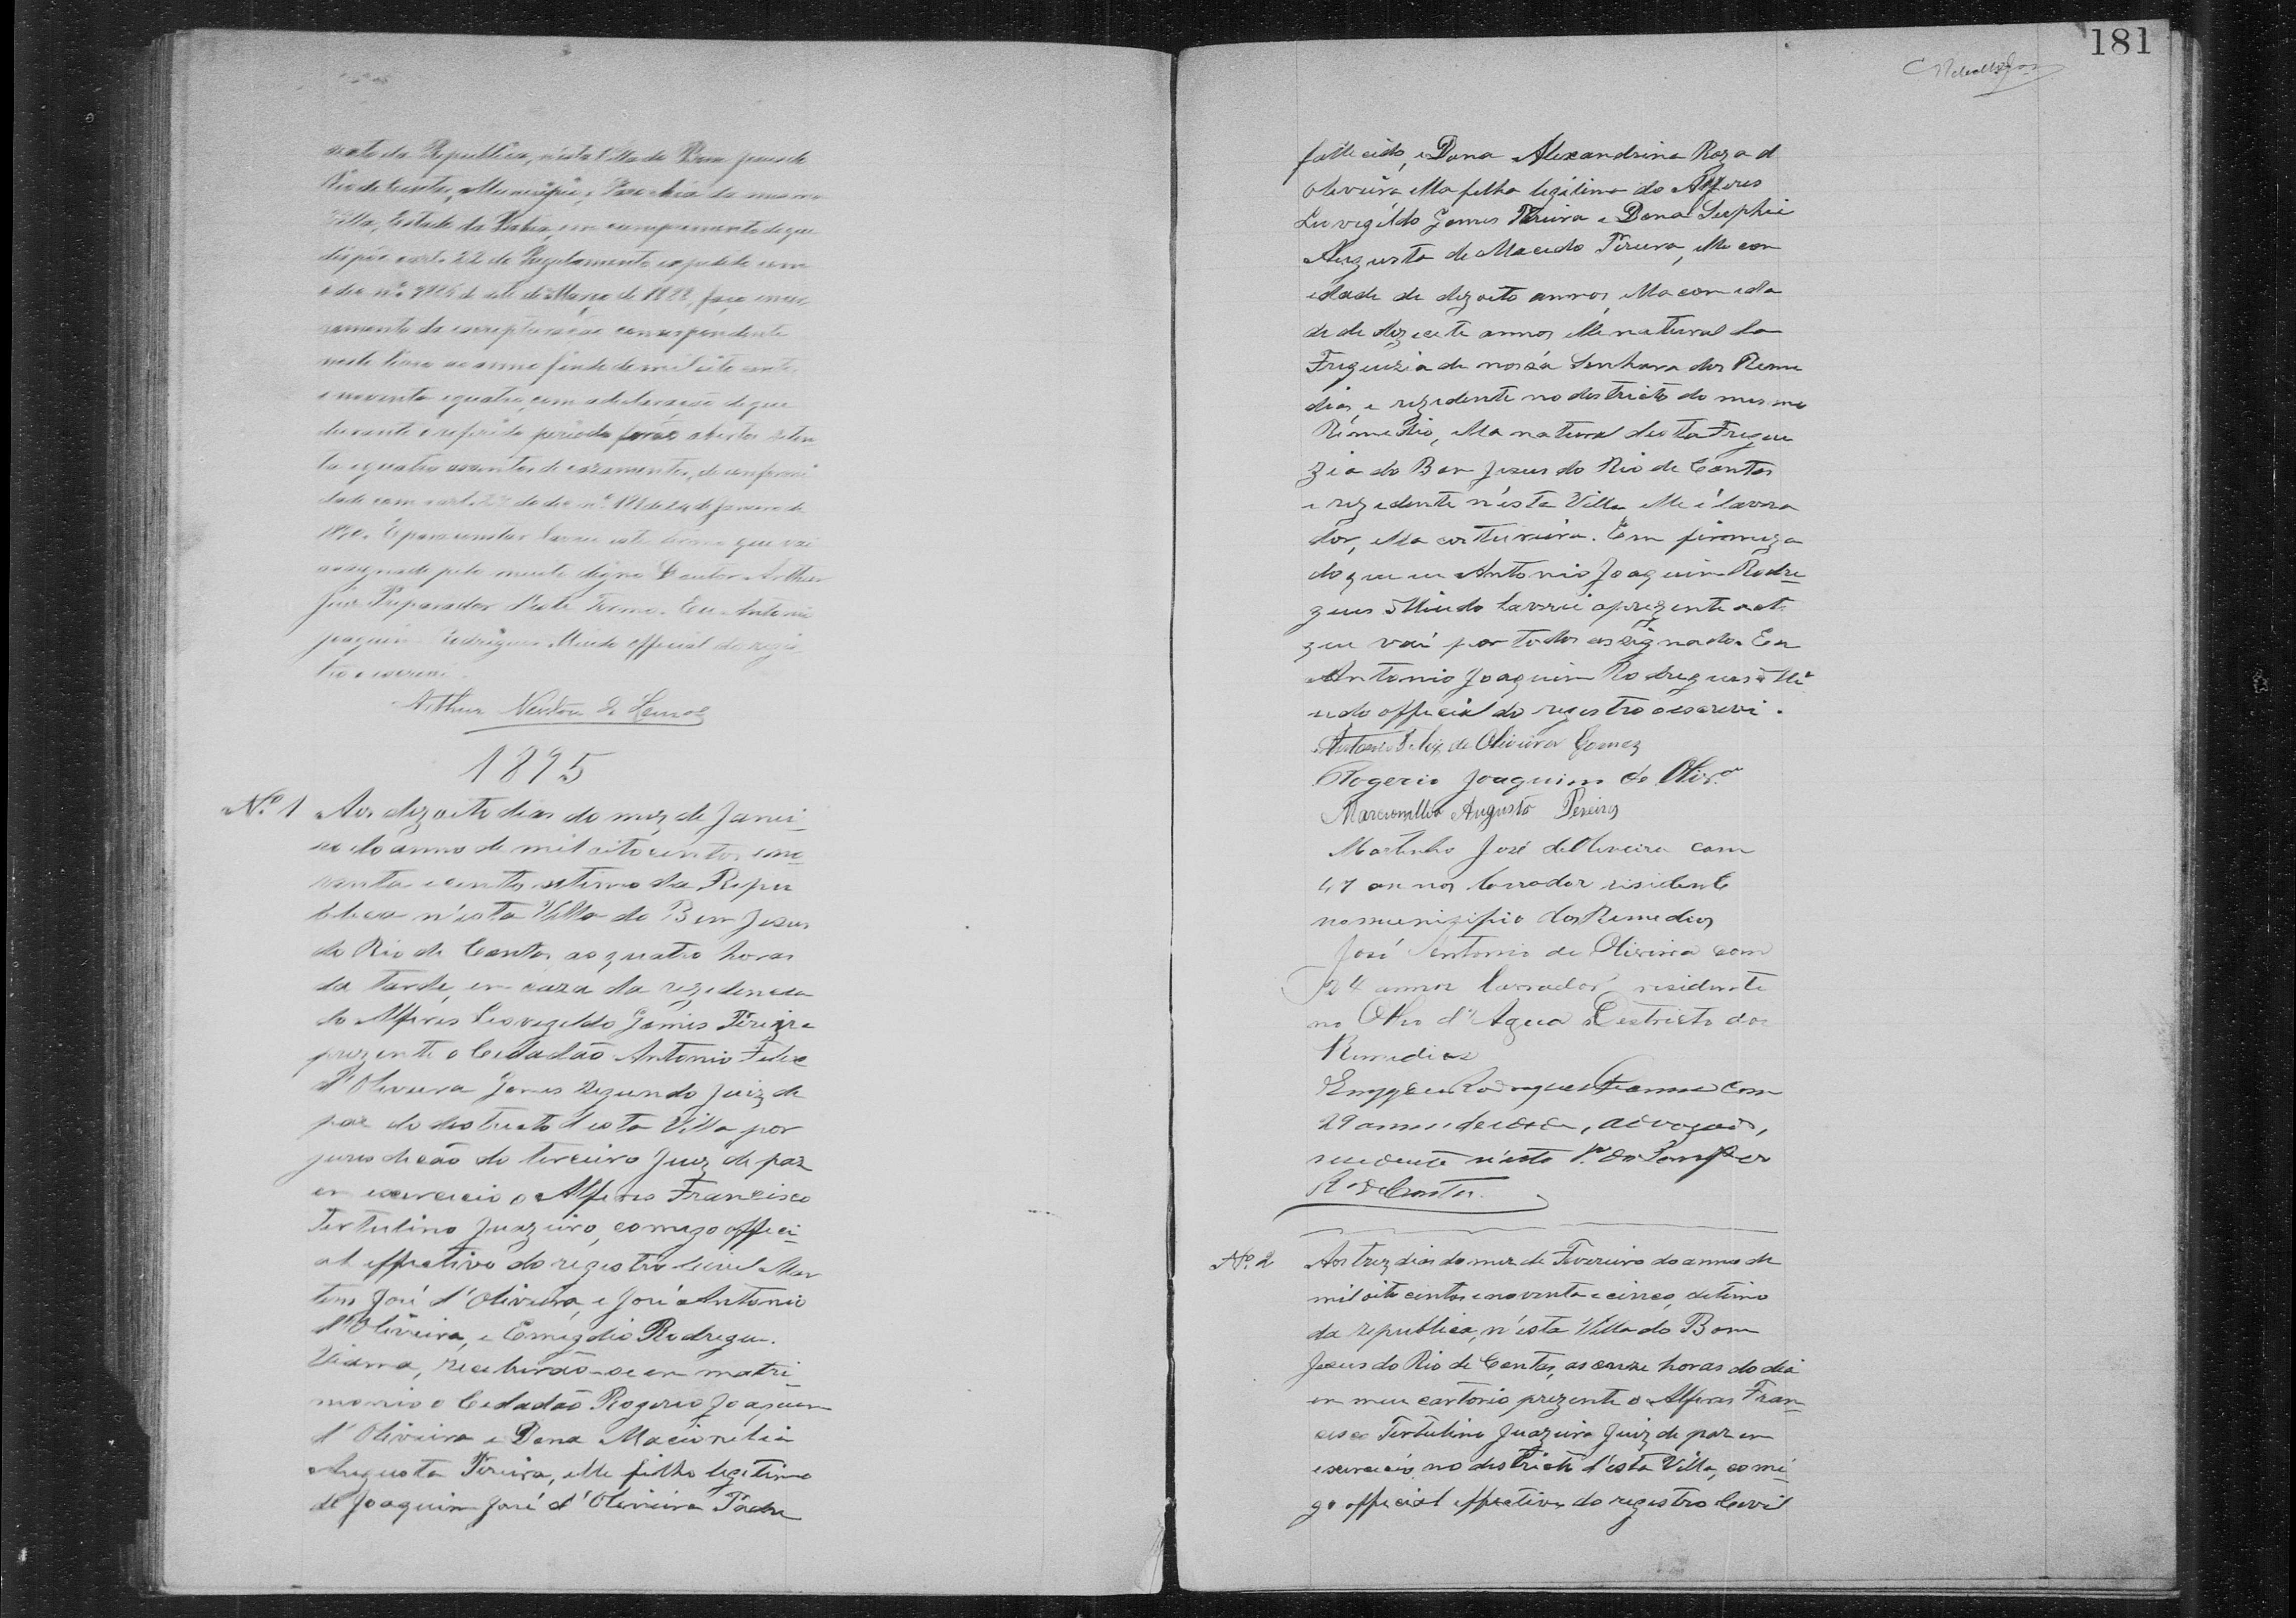 sexto da Republica, n'esta Villa do Bom Jesus do
Rio de Contas, Municipio e Parochia da mesma
Villa, Estado da Bahia, em cumprimento do que
dispõe o art. 22 do Regulamento expedido com
o dec. nº 9886 de sete de Março de 1888, faço encer
ramento da escripturação correspondente
neste livro ao anno findo de mil oito centos
e noventa e quatro, com a declaração de que
durante o referido periodo forão abertos seten
ta e quatro assentos de casamentos, de conformi
dade com o art. do dec. nº 181 de 24 de Janeiro de
1890. E para constar lavrei este termo que vai
assignado pelo muito digno Doutor Arthur
Juiz Preparador d'este Termo. Eu Antonio
Joaquim Rodrigues Miudo official do regis
tro o escrevi.
Arthur Newton de
1895
Nº 1 Aos dezoito dias do mez de Janei-
ro do anno de mil oito centos e no-
venta e cento setimo da Repu
blica n'esta Villa do Bom Jesus
do Rio de Contas as quatro horas
da tarde, em caza da rezidencia
do Alferes Leovegildo Gomes Pereira
prezente o Cidadão Antonio Felix
d'Oliveira Gomes segundo Juiz de
paz do destricto d'esta Villa por
jurisdicão do terceiro Juiz de paz
em exercicio o Alferes Francisco
Tertulino Juazeiro, comigo offici-
al effectivo do registro Civil Mar
tins José d'Oliveira, e José Antonio
d'Oliveira, e Emigdio Rodrigues
Vianna, receberão-se em matri-
monio o Cidadão Rogerio Joaquim
d'Oliveira e Dona Macionilia
Augusta Pereira, elle filho legitimo
de Joaquim José d'Oliveira Padre
181
fallecido, e Dona Alexandrina Roza d
Oliveira ella filha legitima do Alferes
Luvigildo Gomes Pereira e Dona Sophie
Augusta de Macedo Pereira, elle com
idade de dezoito annos, ella com ida
de de dezecete annos elle natural da
Freguezia de nossa Senhora dos Reme
dios, e rezidente no destricto do mesmo
Remedio, ella natural desta Fregue
zia do Bom Jesus do Rio de Contas
e rezidente n'esta Villa elle é lavra
dor, ella costureira. Em firmeza
do que eu Antonio Joaquim Rodri
gues Miudo lavrei o prezente act
que vai por todos assignado. Eu
Antonio Joaquim Rodrigues Mi
udo official do registro o escrevi.
Antonio Felix de Oliveira Gomez
Rogerio Joaquim de Olivra
Marcionillia Augusta Pereira
Martinho José de Oliveira com
47 annos lavrador risidente
no municipio dos Remedios
José Antonio de Oliveira com
24 annos lavrador residente
no Olho d'Agua Destricto dos
Remedios
Emygdio Rodrigues Vianna com
29 annos de idade, advogado,
residente n'esta Vª do Bom Jes
Rº de Contas.
Nº 2 Aos trez dias do mez de Fevereiro do anno de
mil oito centos e noventa e cinco, setimo
da republica, n'esta Villa do Bom
Jesus do Rio de Contas, as onze horas do dia
em meu cartorio prezente o Alferes Fran-
cisco Tertulino Juazeiro Juiz de paz em
exercicio no districto d'esta Villa, comi-
go official effectivo do registro Civil